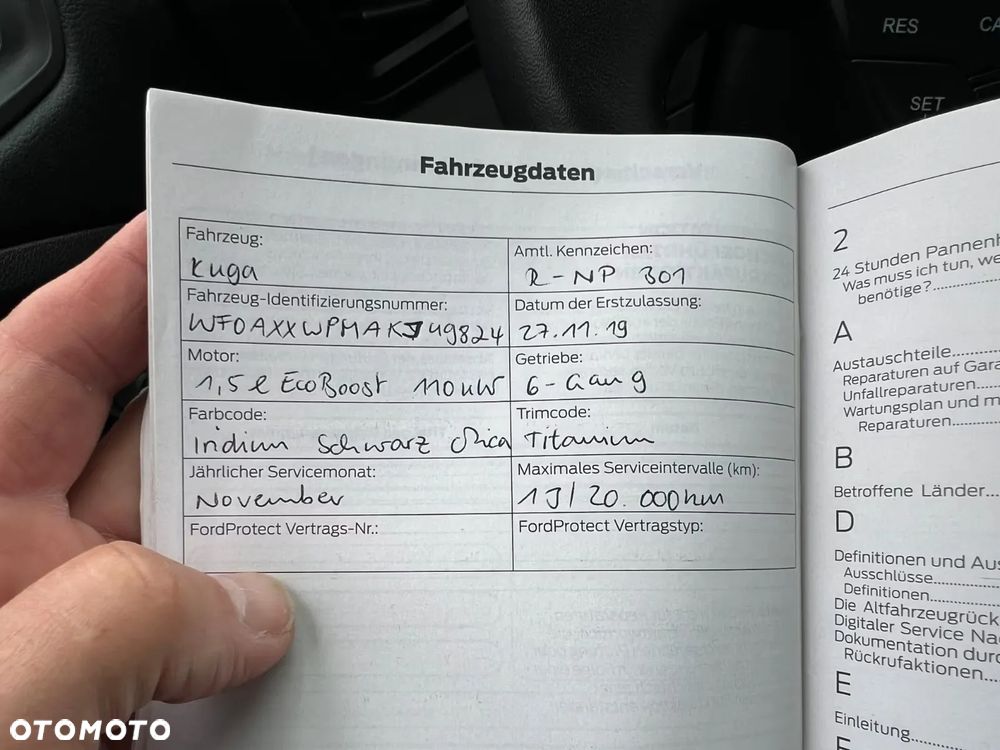 RES
SET
Fahrzeugdaten
Fahrzeug:
Kuga
Amtl. Kennzeichen:
R-NP 301
Fahrzeug-Identifizierungsnummer:
WF0AXXWPMAKJ49824
Datum der Erstzulassung:
27.11.19
Motor:
1,5 l EcoBoost 110 kW
Getriebe:
6-Gang
Farbcode:
Iridium Schwarz Mica
Trimcode:
Titanium
Jährlicher Servicemonat:
November
Maximales Serviceintervalle (km):
1J/20.000km
FordProtect Vertrags-Nr.:
FordProtect Vertragstyp:
2
24 Stunden
Was muss ich tun,
benötige?
A
Austauschteile
Reparaturen auf
Unfallreparaturen
Wartungsplan und
Reparaturen
B
Betroffene Länder
D
Definitionen und
Ausschlüsse
Definitionen
Die
Digitaler Service
Dokumentation
Rückrufaktionen
E
Einleitung
OTOMOTO